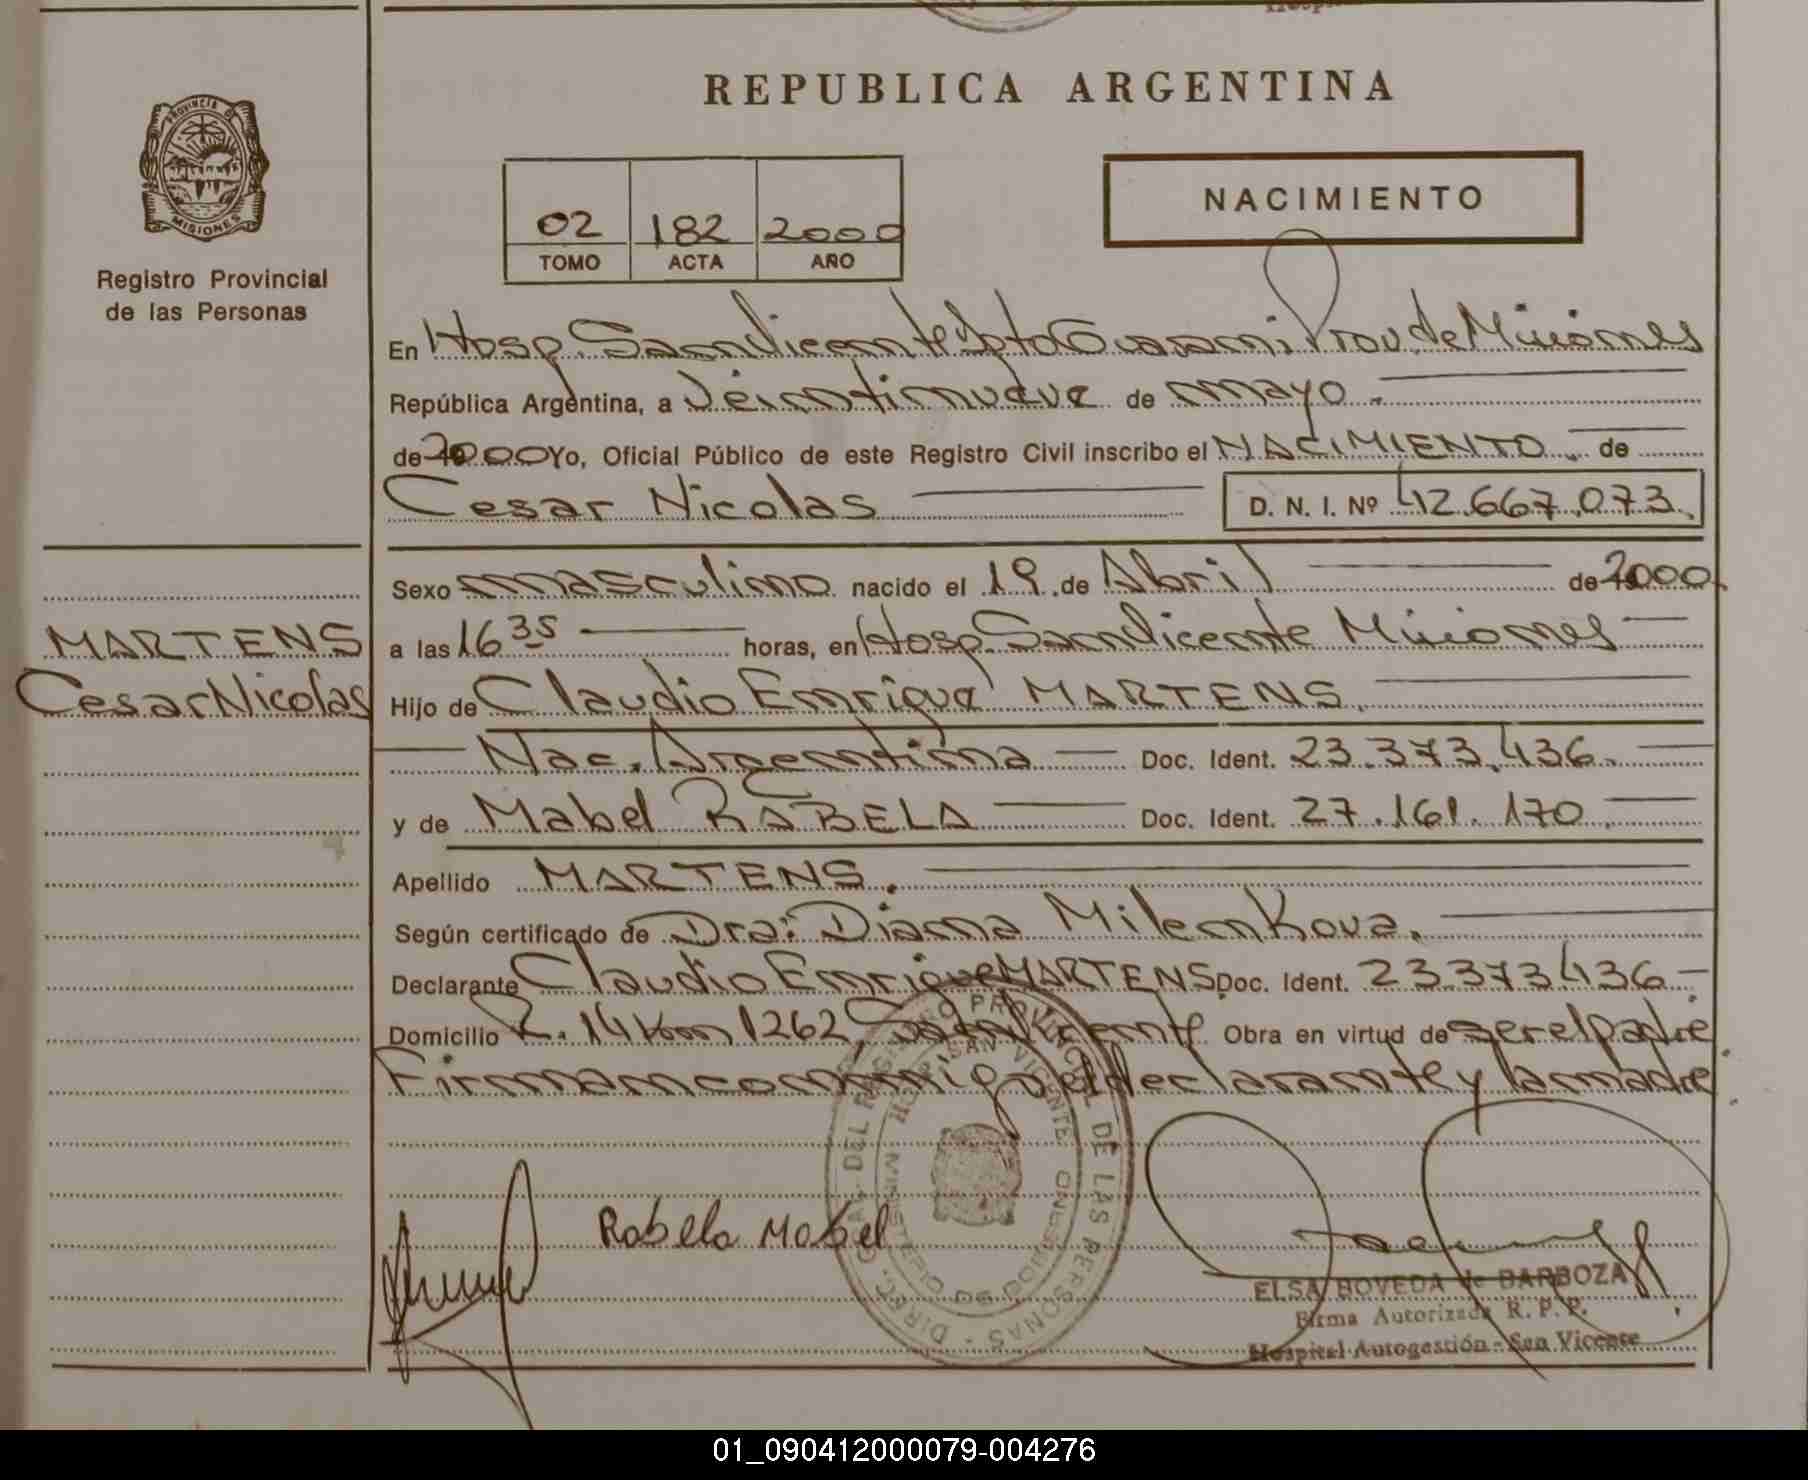 REPUBLICA ARGENTINA
PROVINCIA DE
MISIONES
Registro Provincial
de las Personas
02 182 2000
TOMO ACTA AÑO
NACIMIENTO
En Hosp. San Vicente Dpto Guarani Prov. de Misiones
República Argentina, a Veintinueve de mayo.
de 2000 Yo, Oficial Público de este Registro Civil inscribo el NACIMIENTO de
Cesar Nicolas D. N. I. Nº 42.667.073.
Sexo masculino nacido el 19 de Abril de 2000.
MARTENS
Cesar Nicolas
a las 16 35 horas, en Hosp. San Vicente Misiones
Hijo de Claudio Enrique MARTENS.
Nac. Argentina Doc. Ident. 23.373.436.
y de Mabel RABELA Doc. Ident. 27.161.170.
Apellido MARTENS.
Según certificado de Dra: Diana Milenkova.
Declarante Claudio Enrique MARTENS Doc. Ident. 23.373.436
Domicilio R. 14 Km 1262, San Vicente Obra en virtud de ser el padre
Firman conmigo el declarante y la madre
Rabela Mabel
DIREC. GRAL. DEL REGISTRO PROVINCIAL DE LAS PERSONAS
MINISTERIO DE GOBIERNO
HOSP. SAN VICENTE
ELSA BOVEDA de BARBOZA
Firma Autorizada R. P. P.
Hospital Autogestión - San Vicente
01_090412000079-004276